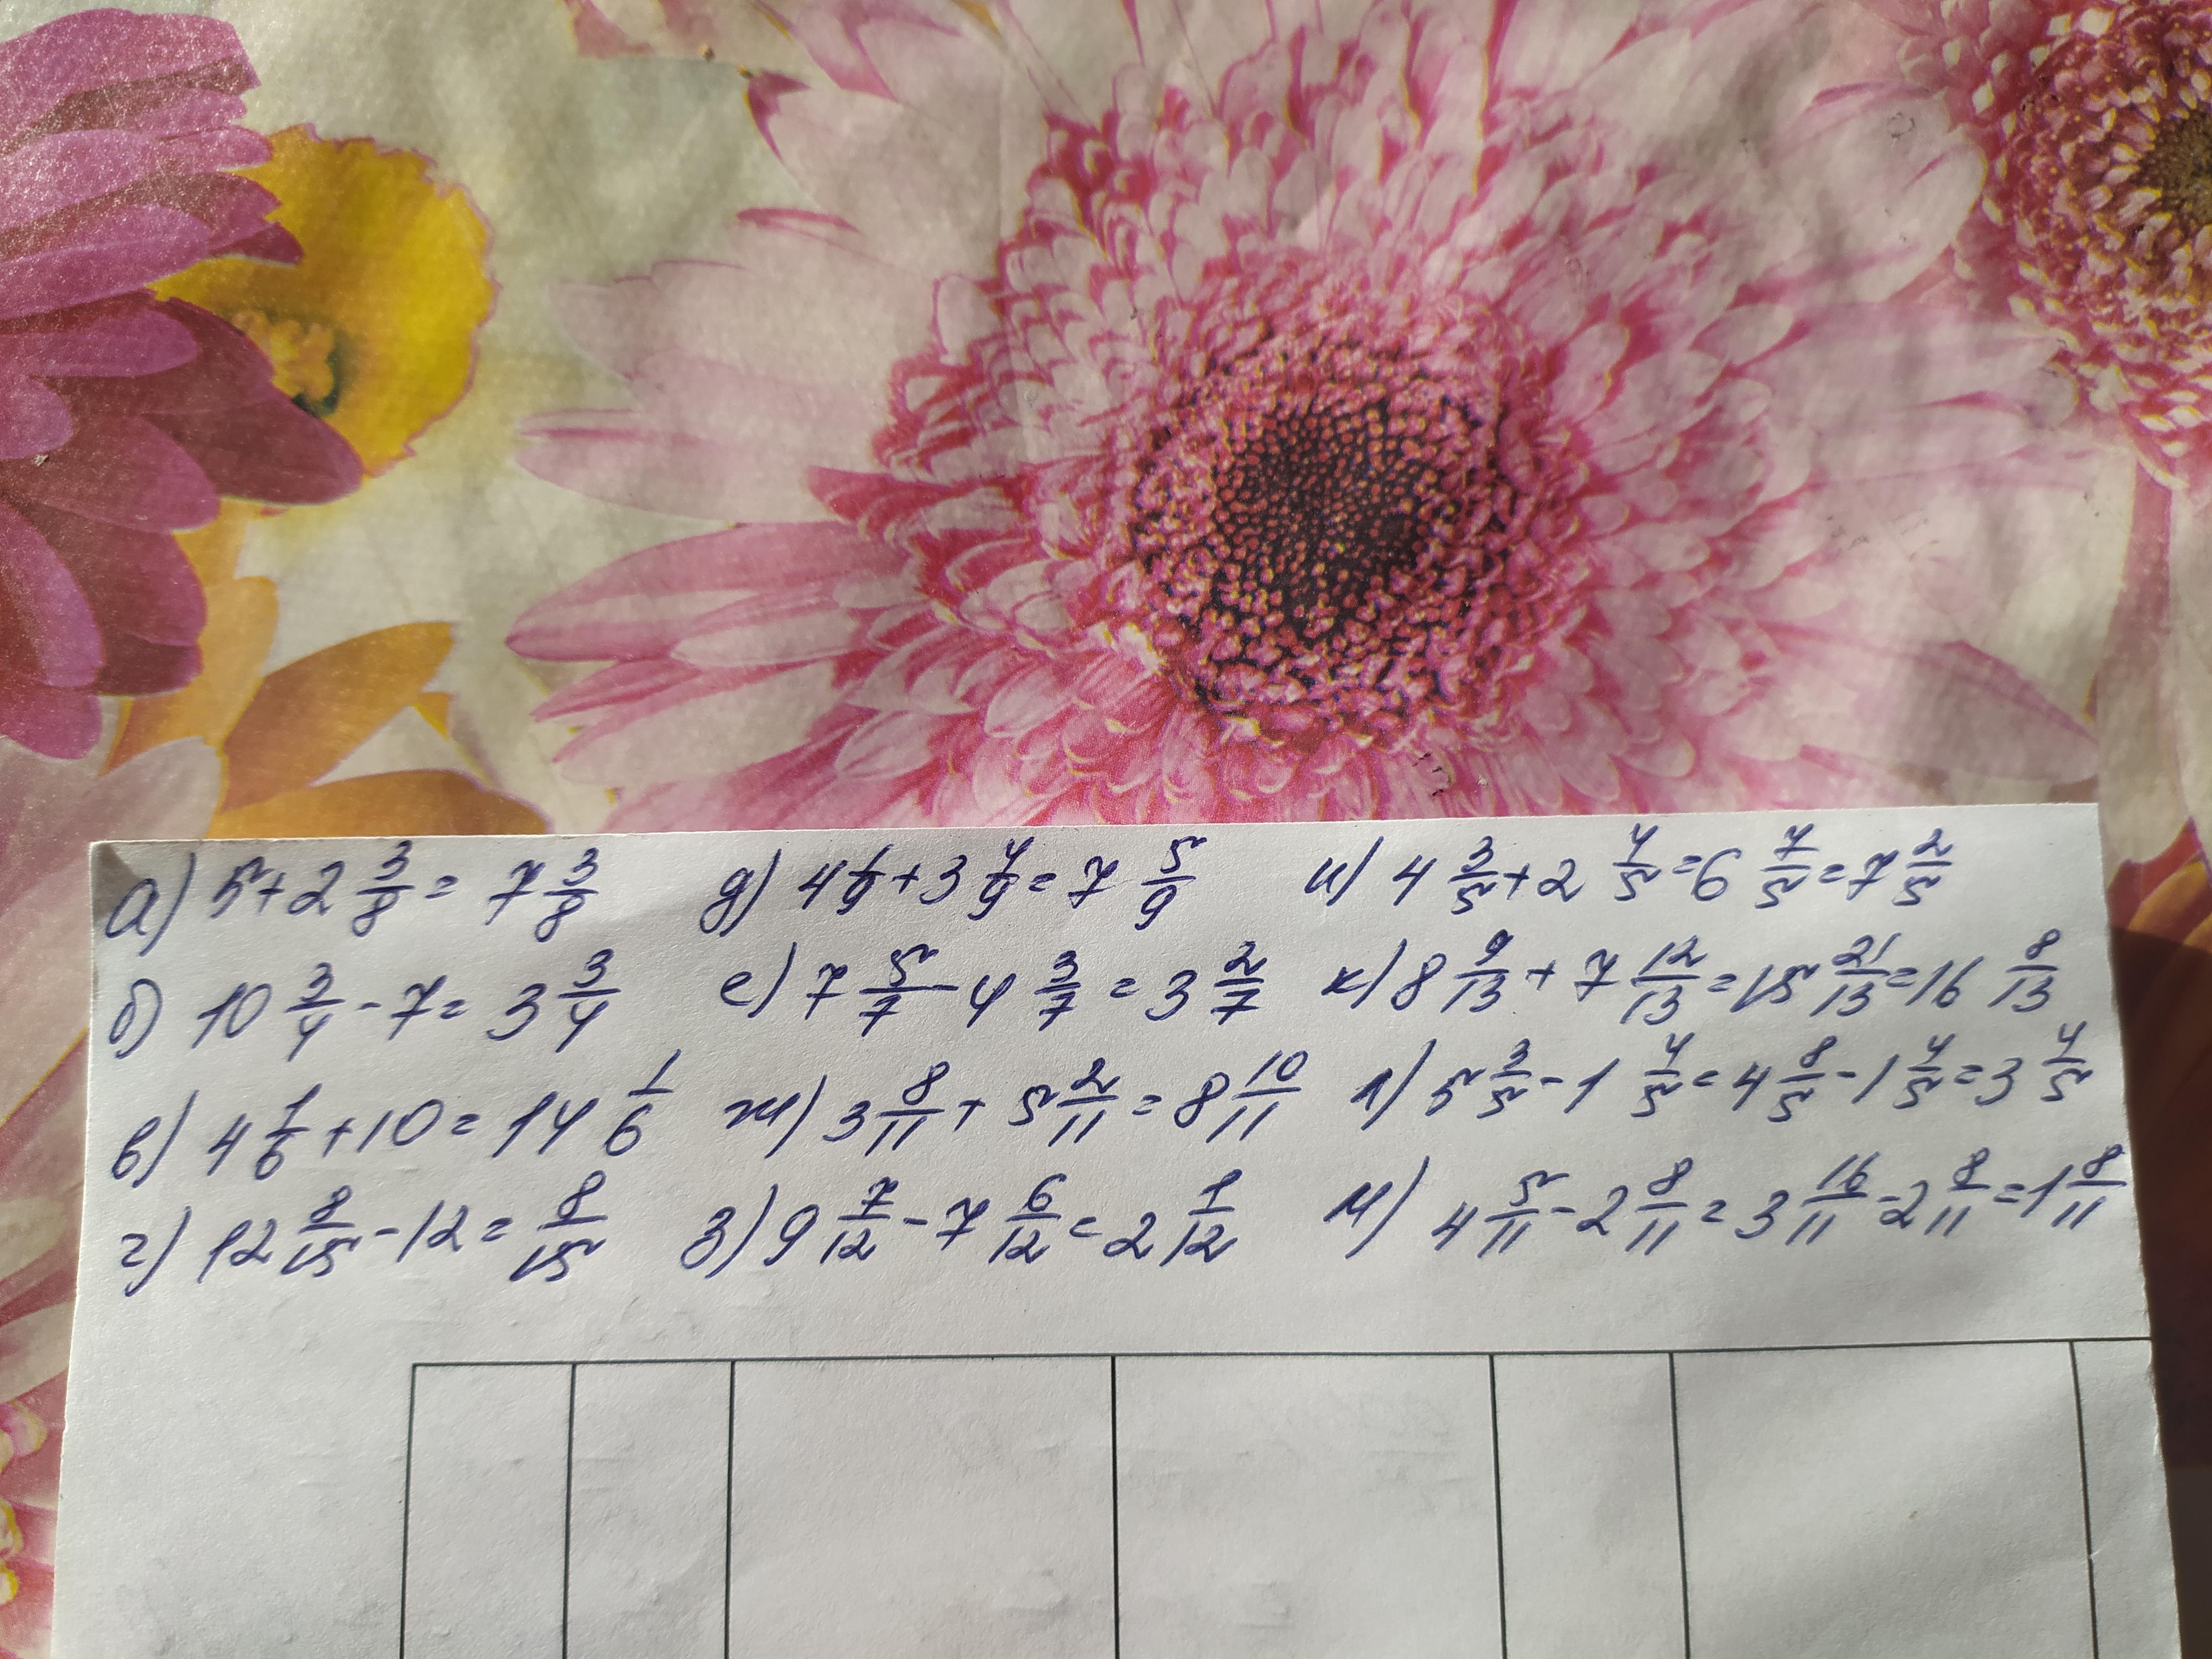 а) 5+2 3/8 = 7 3/8 д) 4 1/9+3 4/9 = 7 5/9 и) 4 3/5+2 4/5=6 7/5=7 2/5
б) 10 3/4 - 7 = 3 3/4 е) 7 5/7 - 4 3/7 = 3 2/7 к) 8 9/13 + 7 12/13 = 15 21/13 = 16 8/13
в) 4 1/6 + 10 = 14 1/6 ж) 3 8/11 + 5 2/11 = 8 10/11 л) 5 3/5 - 1 4/5 = 4 8/5 - 1 4/5 = 3 4/5
г) 12 8/15 - 12 = 8/15 з) 9 7/12 - 7 6/12 = 2 1/12 м) 4 5/11 - 2 8/11 = 3 16/11 - 2 8/11 = 1 8/11